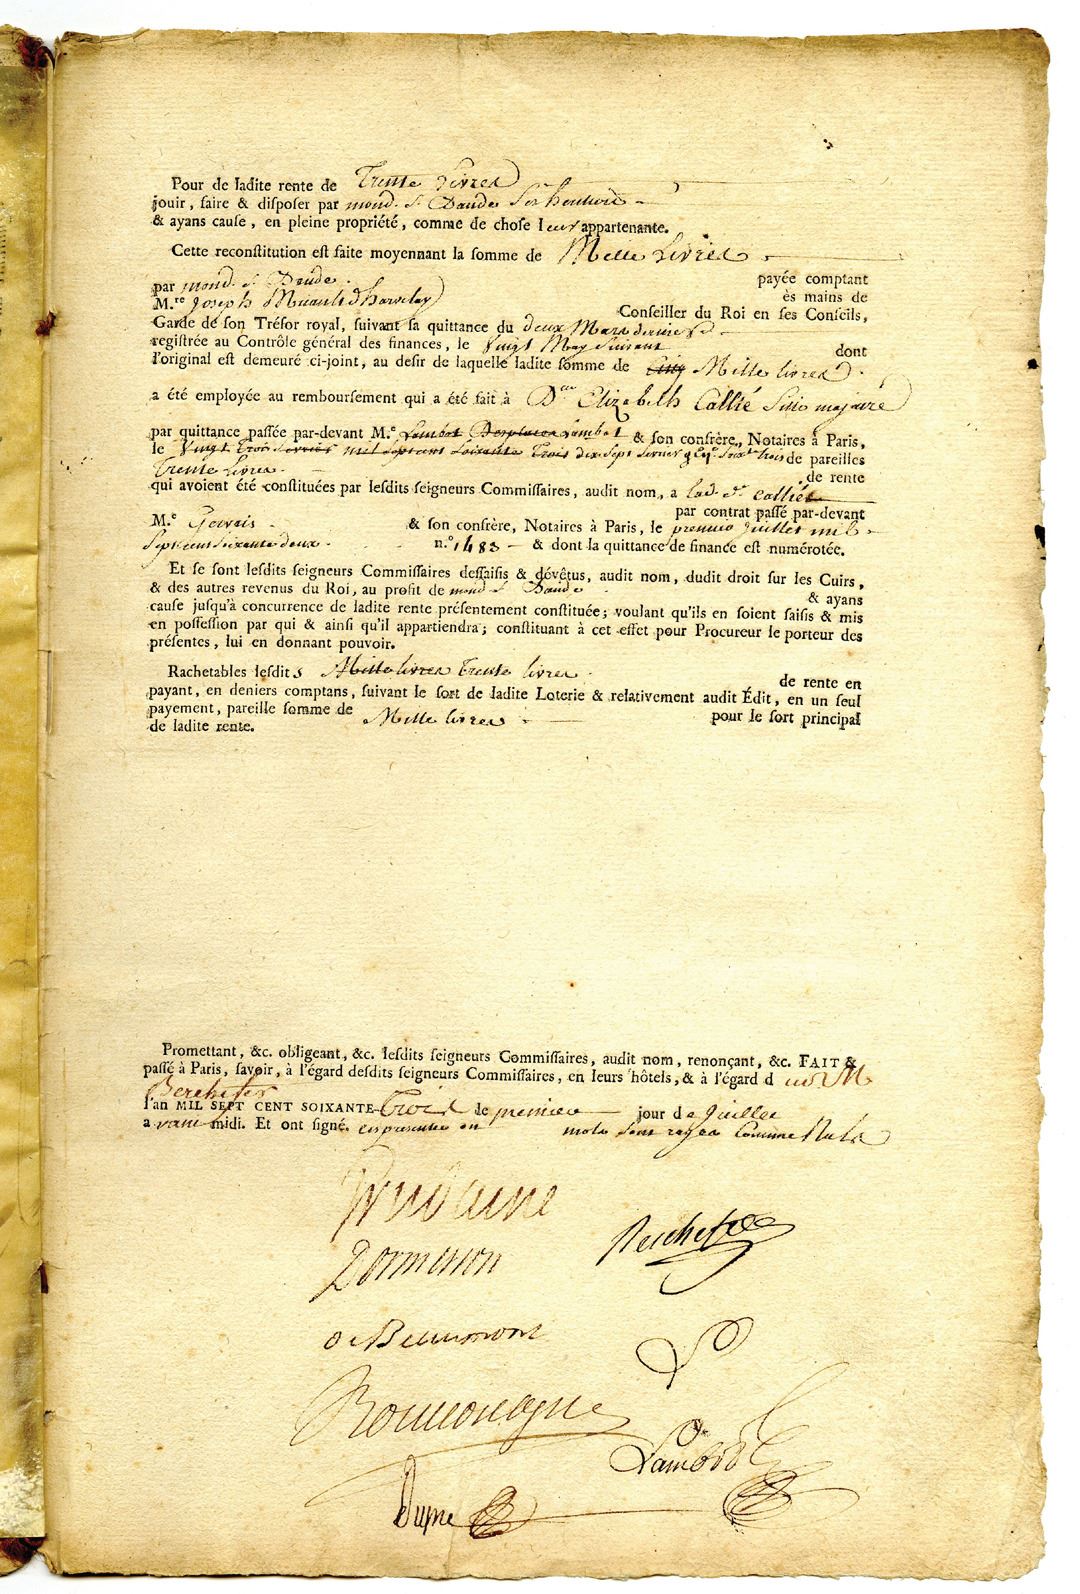 Pour de ladite rente de Trente Livres
jouir, faire & disposer par mond. S. Daude Ses
& ayans cause, en pleine propriété, comme de chose leur appartenante.
Cette reconstitution est faite moyennant la somme de Mille Livres
payée comptant
par mond. S. Daude
ès mains de
M.re Joseph Micault d'harvelay
Conseiller du Roi en ses Conseils,
Garde de son Trésor royal, suivant sa quittance du deux Mars dernier
registrée au Contrôle général des finances, le Vingt May Suivant
dont
l'original est demeuré ci-joint, au desir de laquelle ladite somme de Cinq Mille livres
a été employée au remboursement qui a été fait à D.lle Elizabeth Callié fille majeure
par quittance passée par-devant M.e Lambot Desplaces Lambot & son confrère, Notaires à Paris,
le Vingt Trois fevrier mil Septcent Soixante Trois dix Sept fevrier 9bre Soix.te trois de pareilles
Trente Livres
de rente
qui avoient été constituées par lesdits seigneurs Commissaires, audit nom, a lad. D.e Callié
par contrat passé par-devant
M.e Gervais & son confrère, Notaires à Paris, le premier Juillet mil
Septcent Soixante deux n.o 1483 & dont la quittance de finance est numérotée.
Et se sont lesdits seigneurs Commissaires dessaisis & dévêtus, audit nom, dudit droit sur les Cuirs,
& des autres revenus du Roi, au profit de mond. S. Daude
& ayans
cause jusqu'à concurrence de ladite rente présentement constituée; voulant qu'ils en soient saisis & mis
en possession par qui & ainsi qu'il appartiendra; constituant à cet effet pour Procureur le porteur des
présentes, lui en donnant pouvoir.
Rachetables lesdits Mille livres Trente livres
de rente en
payant, en deniers comptans, suivant le sort de ladite Loterie & relativement audit Édit, en un seul
payement, pareille somme de Mille livres pour le sort principal
de ladite rente.
Promettant, &c. obligeant, &c. lesdits seigneurs Commissaires, audit nom, renonçant, &c. FAIT &
passé à Paris, savoir, à l'égard desdits seigneurs Commissaires, en leurs hôtels, & à l'égard d M
l'an MIL SEPT CENT SOIXANTE-Trois le premier jour de Juillet
avant midi. Et ont signé. mots Sont rayés Comme Nuls
Trudaine
Dormesson
de Beaumont
Boullongne
Lambot
Dupre